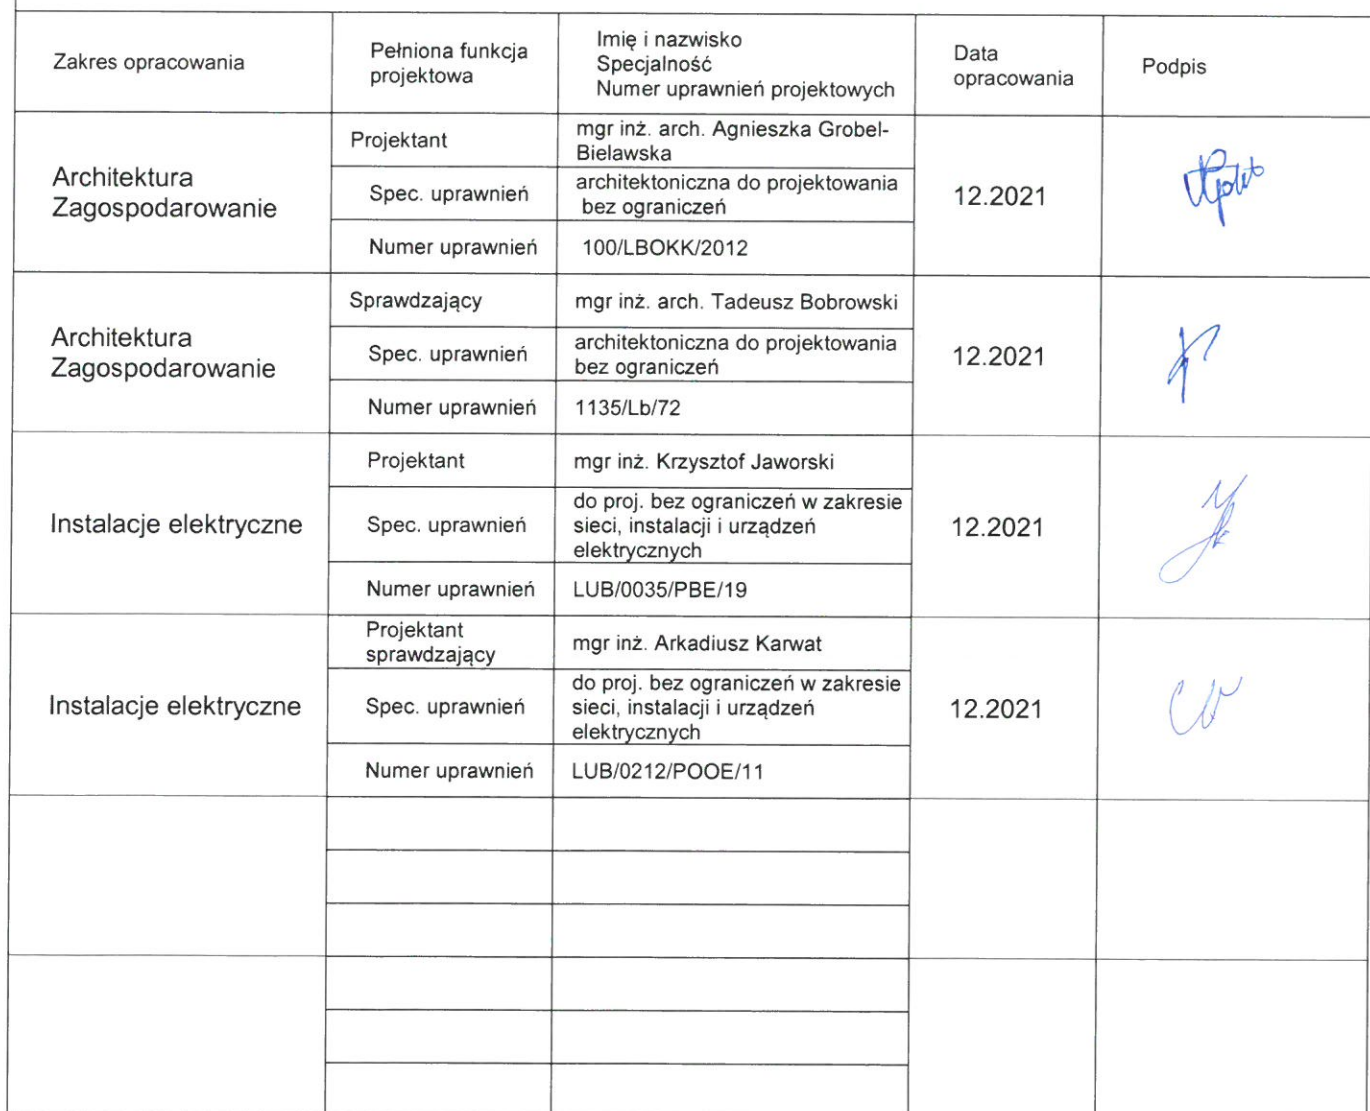 Zakres opracowania
Pełniona funkcja
projektowa
Imię i nazwisko
Specjalność
Numer uprawnień projektowych
Data
opracowania
Podpis
Architektura
Zagospodarowanie
Projektant
mgr inż. arch. Agnieszka Grobel-
Bielawska
Spec. uprawnień
architektoniczna do projektowania
bez ograniczeń
Numer uprawnień
100/LBOKK/2012
12.2021
Architektura
Zagospodarowanie
Sprawdzający
mgr inż. arch. Tadeusz Bobrowski
Spec. uprawnień
architektoniczna do projektowania
bez ograniczeń
Numer uprawnień
1135/Lb/72
12.2021
Instalacje elektryczne
Projektant
mgr inż. Krzysztof Jaworski
Spec. uprawnień
do proj. bez ograniczeń w zakresie
sieci, instalacji i urządzeń
elektrycznych
Numer uprawnień
LUB/0035/PBE/19
12.2021
Instalacje elektryczne
Projektant
sprawdzający
mgr inż. Arkadiusz Karwat
Spec. uprawnień
do proj. bez ograniczeń w zakresie
sieci, instalacji i urządzeń
elektrycznych
Numer uprawnień
LUB/0212/POOE/11
12.2021